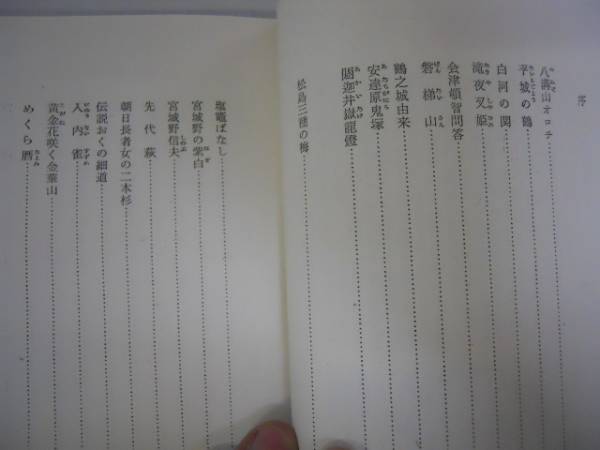 序
八溝山オロチ
平城の鶴
白河の関
滝夜叉姫
会津頓智問答
磐梯山
鶴之城由来
安達原鬼塚
閼迦井嶽龍燈
松島三糎の梅
塩竈ばなし
宮城野の紫白
宮城野信夫
先代萩
朝日長者女の二本杉
伝説おくの細道
入内雀
黄金花咲く金華山
めくら酒